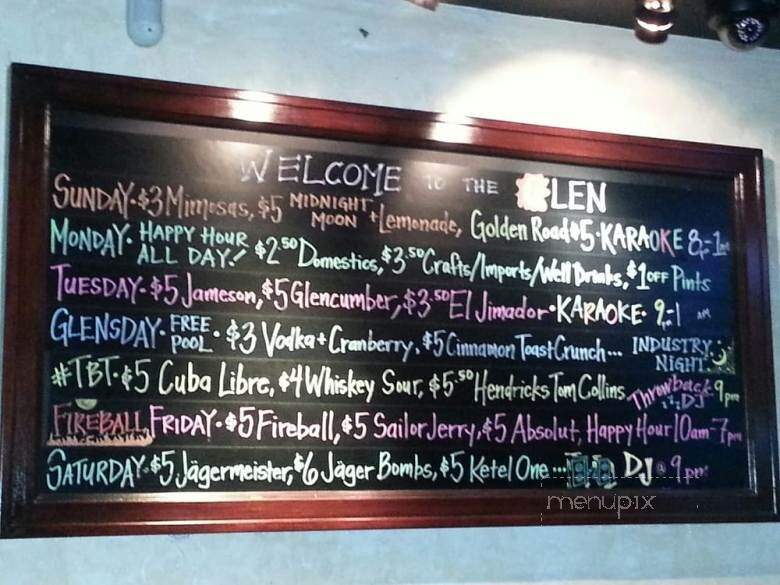 WELCOME TO THE GLEN
SUNDAY • $3 Mimosas, $5 MIDNIGHT MOON + Lemonade, Golden Road $5 • KARAOKE 8-1am
MONDAY • HAPPY HOUR ALL DAY! $2.50 Domestics, $3.50 Crafts/Imports/Well Drinks, $1 OFF Pints
TUESDAY • $5 Jameson, $5 Glencumber, $3.50 El Jimador • KARAOKE • 9-1 AM
GLENSDAY • FREE POOL • $3 Vodka + Cranberry, $5 Cinnamon Toast Crunch... INDUSTRY NIGHT
#TBT • $5 Cuba Libre, $4 Whiskey Sour, $5.50 Hendricks Tom Collins Throwback DJ 9pm
FIREBALL FRIDAY • $5 Fireball, $5 Sailor Jerry, $5 Absolut, Happy Hour 10am-7pm
SATURDAY • $5 Jägermeister, $6 Jäger Bombs, $5 Ketel One... DJ @ 9pm
menupix